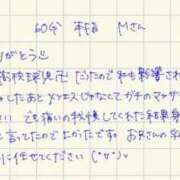 60分 本指 Mさん
がとう
高校球児卍だったので私も影響され
したあとメンエスじゃなくてガチのマッサ
でも痛いの我慢してくれた結果身
言ってたので良かったです。お尻さんの
に任せてください(°∀°)